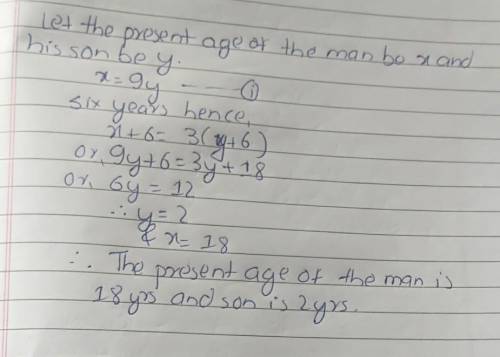 Let the present age of the man be x and
his son be y.
x = 9y ---- ①
six years hence,
x+6 = 3(y+6)
or, 9y+6 = 3y+18
or, 6y = 12
∴ y = 2
& x = 18
∴ The present age of the man is
18 yrs and son is 2 yrs.